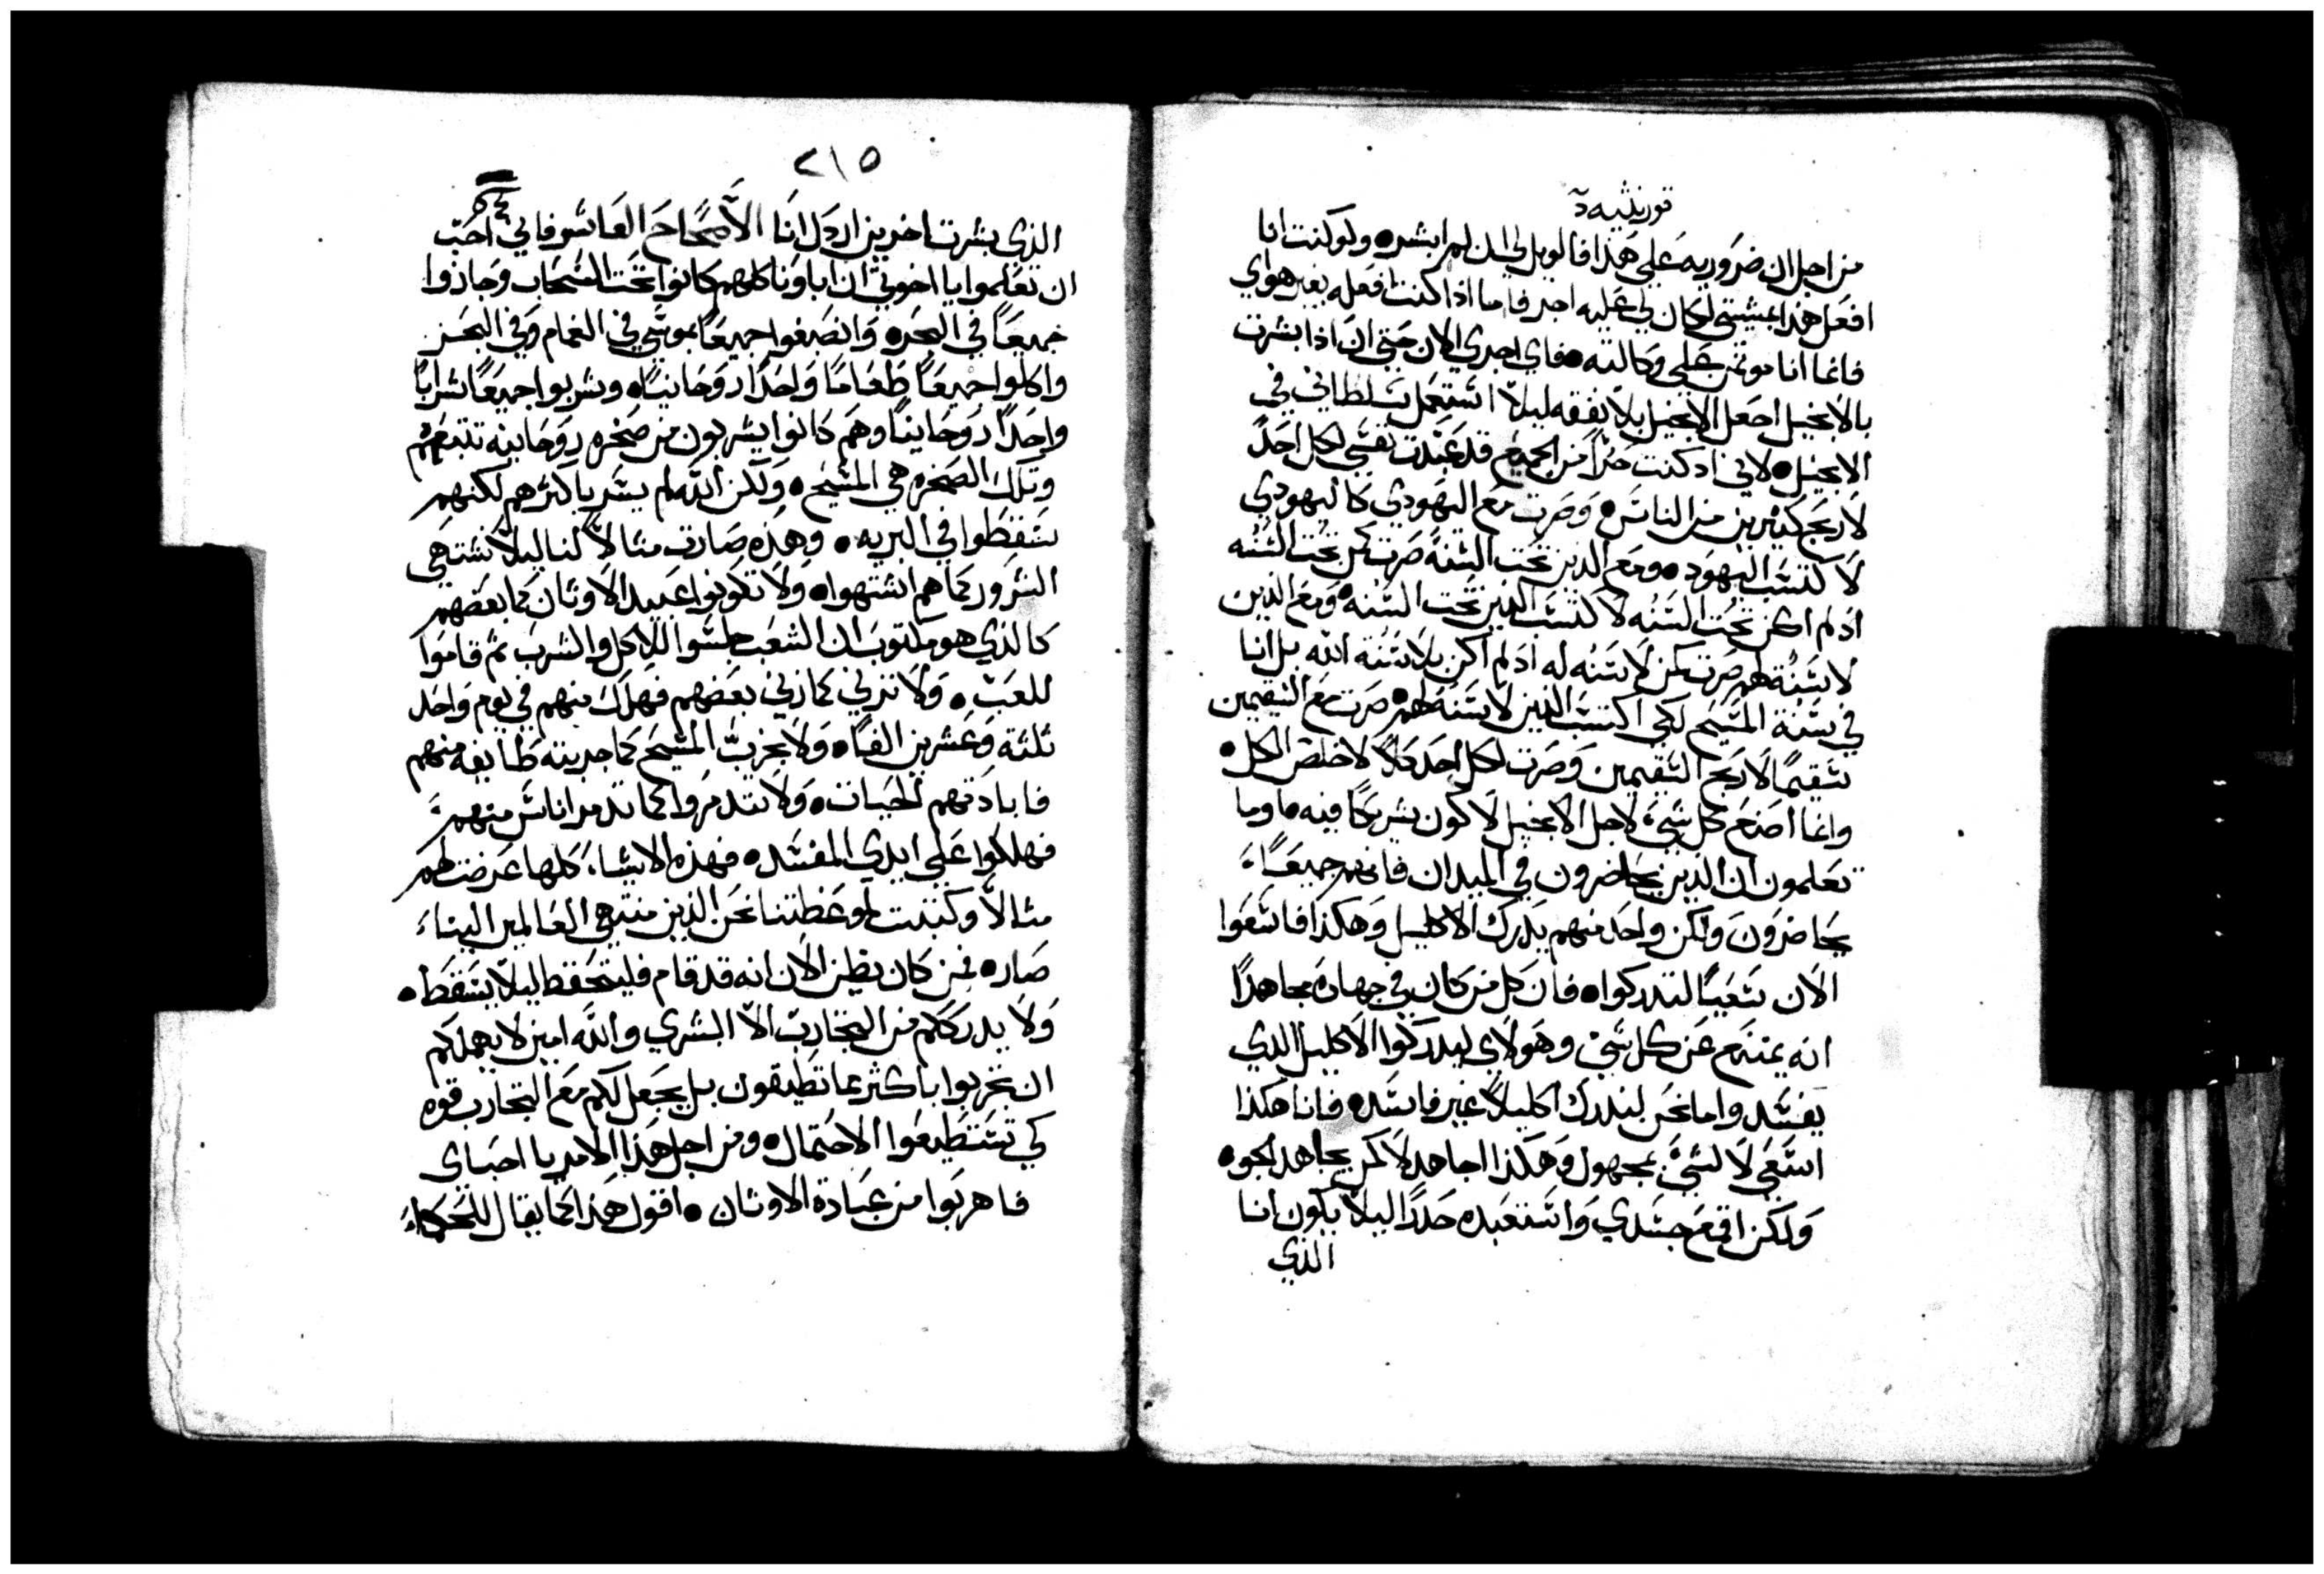 قورنثيه
من اجل ان ضروريه علي هذا فالويل لي ان لم ابشر ولو كنت انا
افعل هذا بمشيتي لكان لي عليه اجر فاما اذا كنت افعله بغير هواي
فانما انا موتمن علي وكالته فاي اجري الان حتي ان اذا بشرت
بالانجيل اجعل الانجيل بلا نفقه ليلا استعمل سلطاني في
الانجيل لاني اذ كنت حرا من الجميع قد عبدت نفسي لكل احد
لاربح كثيرين من الناس وصرت مع اليهودي كاليهودي
لاكتسب اليهود ومع الذين تحت السنه صرت كمن تحت السنه
اذ لم اكن تحت السنه لاكتسب الذين تحت السنه ومع الذين
لا سنة لهم صرت كمن لا سنه له اذ لم اكن بلا سنة الله بل انا
في سنة المسيح لكي اكتسب الذين لا سنة لهم صرت مع السقيمين
سقيما لاربح السقيمين وصرت لكل احد كلا لاخلص الكل
وانما اصنع كل شي لاجل الانجيل لاكون شريكا فيه اوما
تعلمون ان الذين يحاضرون في الميدان فانهم جميعا
يحاضرون ولكن واحد منهم يدرك الاكليل وهكذا فاسعوا
الان سعيا لتدركوا فان كل من كان في جهاده مجاهدا
انه يمتنع عن كل شي وهولاي ليدركوا الاكليل الذي
يفسد واما نحن لندرك اكليلا غير فاسد فانا هكذا
اسعي لا لشي مجهول وهكذا اجاهد لا كمن يجاهد الجو
ولكن اقمع جسدي واستعبده حدرا ليلا يكون انا
الذي
٢١٥
الذي بشرت اخرين اردل انا الاصحاح العاشر فاني احب
ان تعلموا يا اخوتي ان اباونا كلهم كانوا تحت السحاب وجازوا
جميعا في البحر وانصبغوا جميعا بموسي في الغمام وفي البحر
واكلوا جميعا طعاما واحدا روحانيا وشربوا جميعا شرابا
واحدا روحانيا وهم كانوا يشربون من صخره روحانيه تتبعهم
وتلك الصخره هي المسيح ولكن الله لم يسر باكثرهم لكنهم
سقطوا في البريه وهذه صارت مثالا لنا ليلا نشتهي
الشرور كما هم اشتهوا ولا تكونوا عبيد الاوثان كما بعضهم
كالذي هو مكتوب ان الشعب جلسوا للاكل والشرب ثم قاموا
للعب ولا نزني كما زني بعضهم فهلك منهم في يوم واحد
ثلثة وعشرين الفا ولا نجرب المسيح كما جربته طايفه منهم
فابادتهم الحيات ولا تتدمروا كما تدمر اناس منهم
فهلكوا علي ايدي المفسد فهذه الاشيا كلها عرضت لهم
مثالا وكتبت لموعظتنا نحن الذين منتهي العالمين الينا
صار فمن كان يظن الان انه قد قام فليتحفظ ليلا يسقط
ولا يدرككم من التجارب الا البشري والله امين لا يهملكم
ان تجربوا باكثر مما تطيقون بل يجعل لكم مع التجارب قوه
كي تستطيعوا الاحتمال ومن اجل هذا الامر يا احباي
فاهربوا من عبادة الاوثان اقول هذا كما يقال للحكما